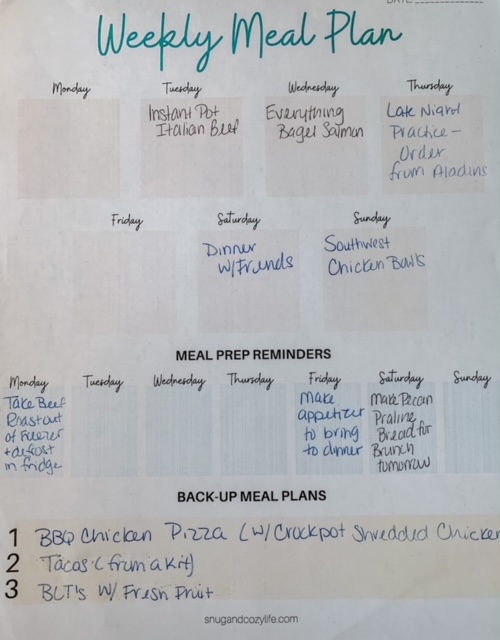 DATE
Weekly Meal Plan
Monday Tuesday Wednesday Thursday
Instant Pot
Italian Beef
Everything
Bagel Salmon
Late Night
Practice-
Order
from Aladins
Friday Saturday Sunday
Dinner
w/Friends
Southwest
Chicken Bowls
MEAL PREP REMINDERS
Monday Tuesday Wednesday Thursday Friday Saturday Sunday
Take Beef
Roast out
of Freezer
+ defrost
in fridge
Make
appetizer
to bring
to dinner
Make Pecan
Praline
Bread for
Brunch
tomorrow
BACK-UP MEAL PLANS
1 BBQ Chicken Pizza (w/Crockpot Shredded Chicken
2 Tacos (from a Kit)
3 BLT's w/ Fresh Fruit
snugandcozylife.com